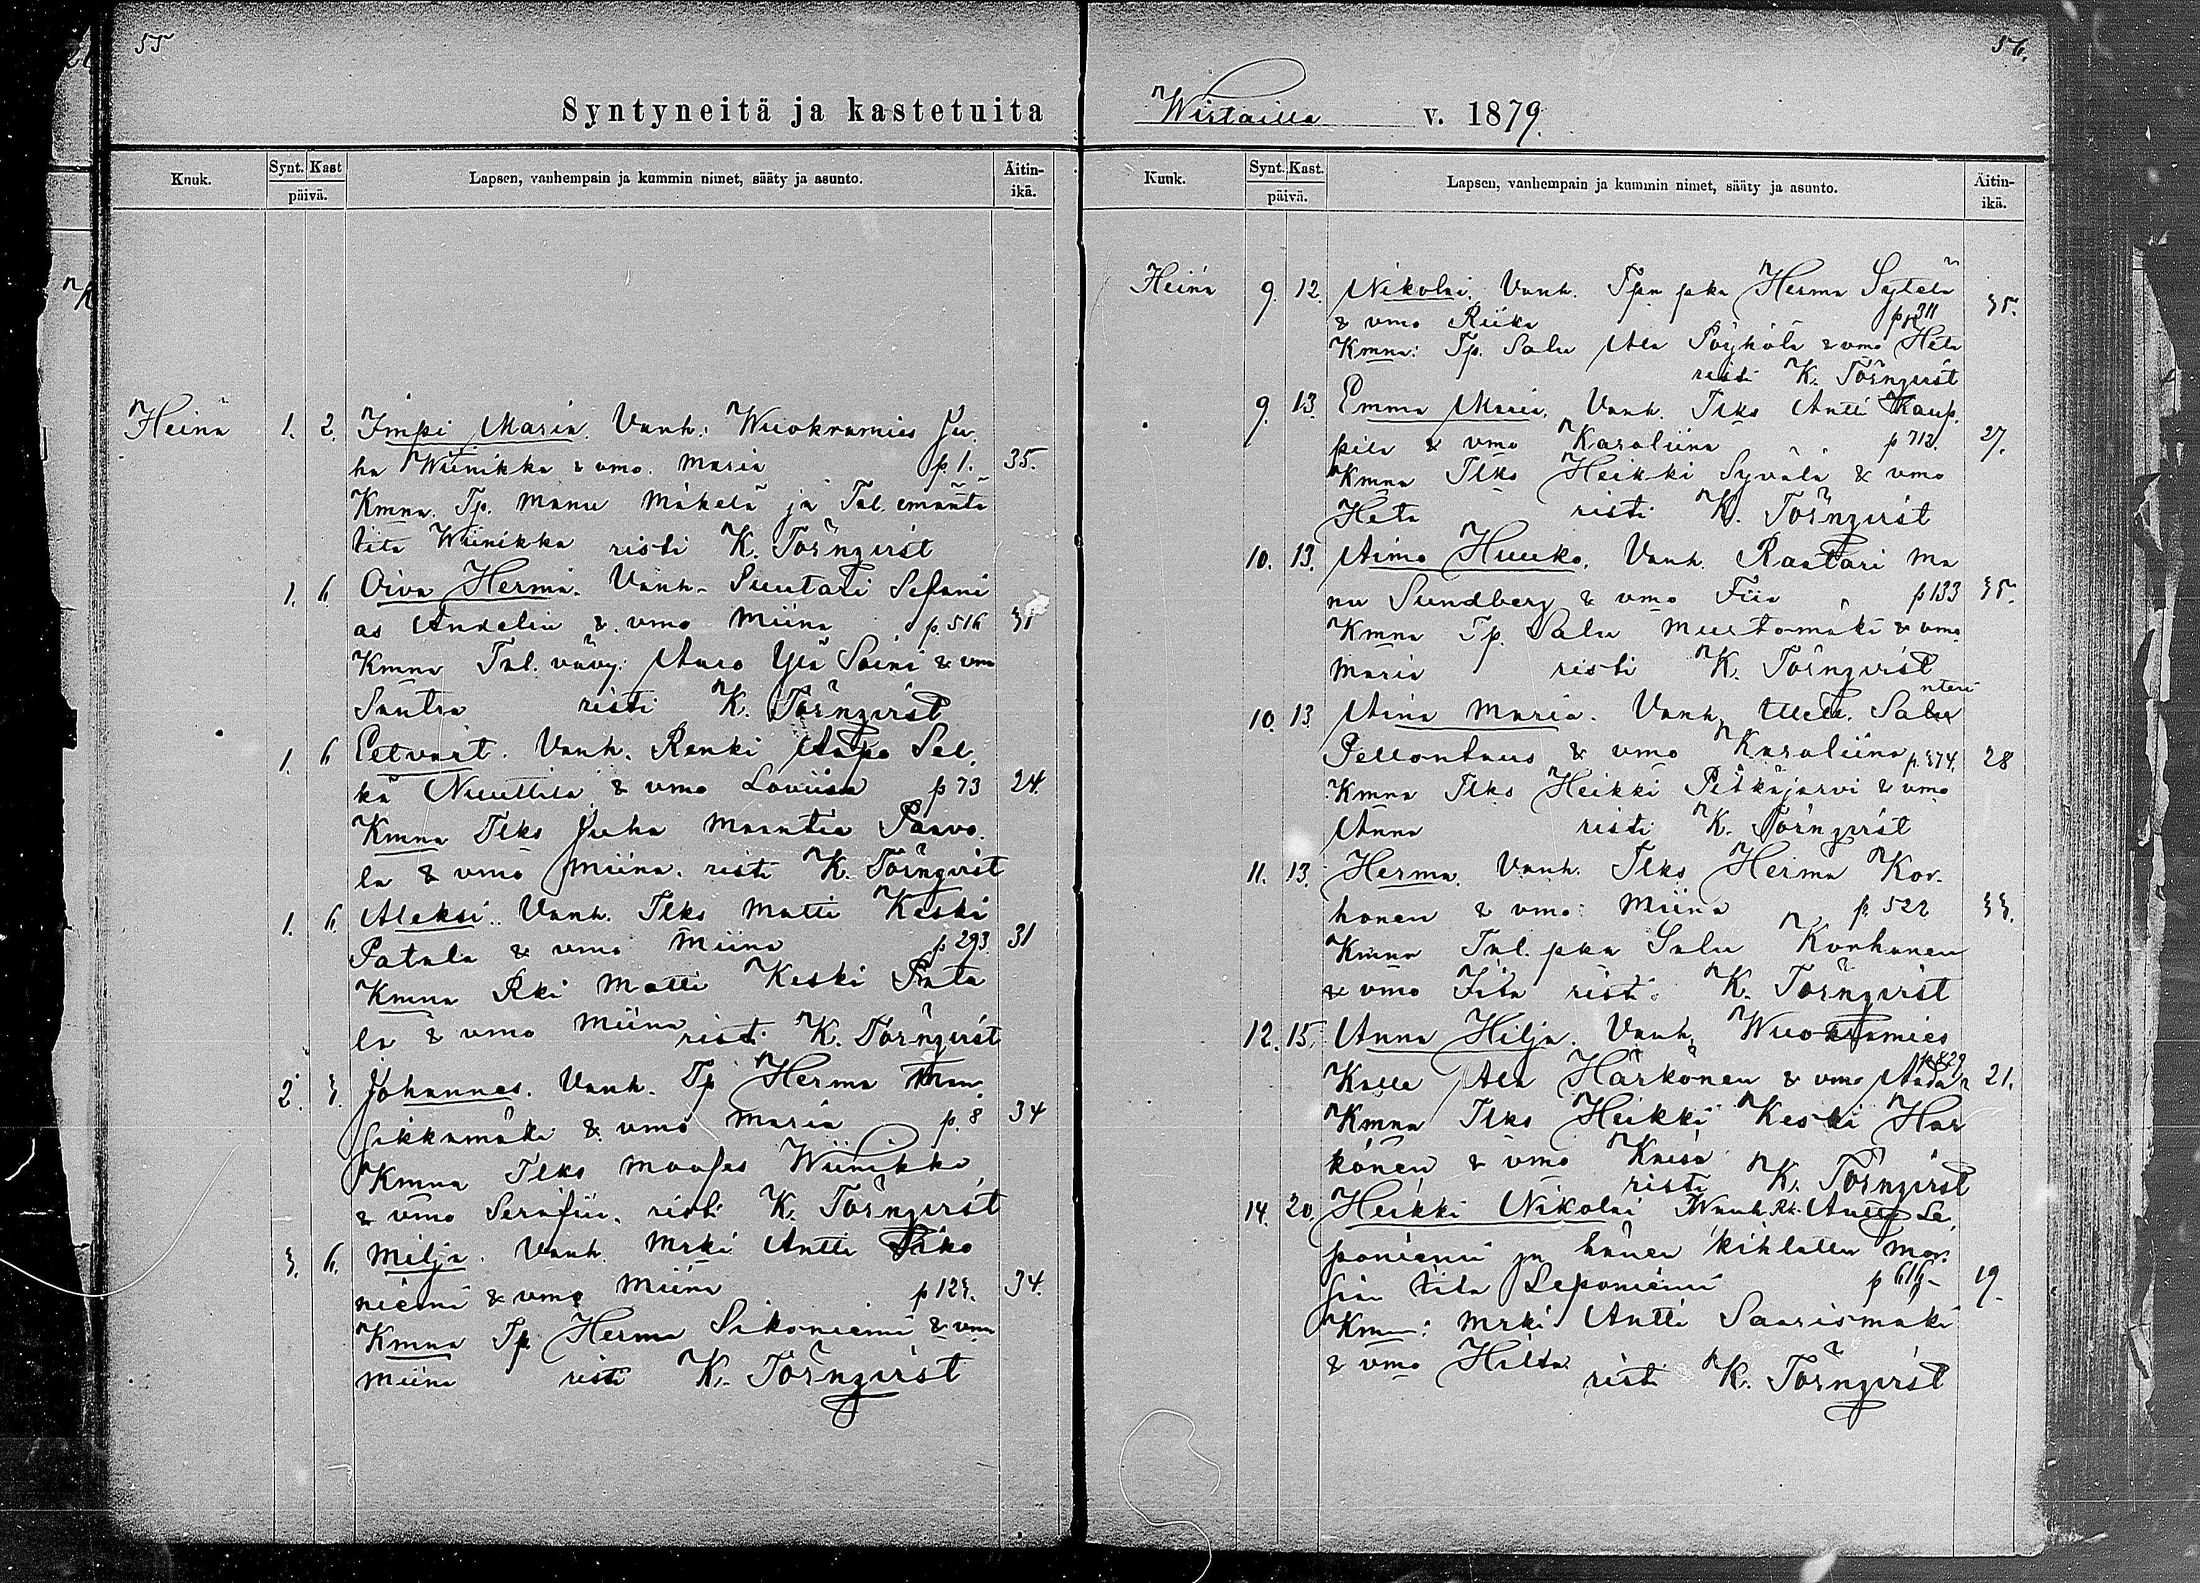 55
Syntyneitä ja kastetuita
Kuuk.
Synt. Kast
päivä.
Lapsen, vanhempain ja kummin nimet, sääty ja asunto.
Äitin-
ikä.
Heinä 1. 2. Impi Maria. Vanh: Wuokramies Ju-
ha Wiinikka & vmo. Maria p. 1. 35.
Kmna. Tp. Manu Mäkelä ja Tal. emäntä
Wiinikka risti K. Törnqvist
1. 6. Oiva Herma. Vanh. Suutari Sefani
as Andelin & vmo Miina p. 516
Kmna Tal. vävy: Ylä Soini & vm
Santra risti K. Törnqvist
1. 6 Eetvart. Vanh. Renki Aapo Sel-
kä Nuuttila & vmo Loviisa p 73 24.
Kmna Tlks Juha Paavo-
la & vmo Miina. risti K. Törnqvist
1. 6. Aleksi. Vanh. Tlks Matti Keski
Patala & vmo Miina p 293. 31
Kmna Rki Matti Keski Pata
la & vmo Miina risti K. Törnqvist
2. 3. Johannes. Vanh. Tp Herma Man-
sikkamäki & vmo Maria p. 8 34
Kmna Tlks Wiinikka
& vmo Serafii. risti K. Törnqvist
3. 6. Milja. Vanh. Mrki Antti Siko
niemi & vmo Miina p 123. 34.
Kmna Tp. Herma Sikoniemi & vm
Miina risti K. Törnqvist
56.
Wirtailla v. 1879.
Kuuk.
Synt. Kast.
päivä.
Lapsen, vanhempain ja kummin nimet, sääty ja asunto.
Äitin-
ikä.
Heinä 9. 12. Nikolai. Vanh. Tpn pka Herma Sytelä
& vmo Riika p 311 35.
Kmna: Tp. Salu Ala Pöyhölä & vmo Heta
risti K. Törnqvist
9. 13. Emma Maria. Vanh. Tlks Antti Kaup-
pila & vmo Karoliina p 712. 27.
Kmna Tlks Heikki Syvälä & vmo
Heta risti K. Törnqvist
10. 13. Aimo Huuko. Vanh. Raatari Ma
nu Sundberg & vmo Fiia p 133 35.
Kmna Tp. Salu Mustamäki & vmo
Maria risti K. Törnqvist
10. 13 Aina Maria. Vanh. Salu nteri
Pellontaus & vmo Karoliina p. 374. 28
Kmna Tlks Heikki Pitkäjärvi & vmo
Anna risti K. Törnqvist
11. 13. Herma. Vanh. Tlks Herma Kor-
honen & vmo: Miina p. 522 33.
Kmna Tal. pka Salu Korhonen
& vmo Iita risti. K. Törnqvist
12. 15. Anna Hilja. Vanh. Wuokramies
Kalle Ala Härkönen & vmo p 829 21.
Kmna Tlks Heikki Keski Här
könen & vmo Kaisa
risti K. Törnqvist
14. 20. Heikki Nikolai Vanh. Rki Antti Le-
poniemi ja hänen kihlattu mor-
sian Iita Leponiemi p 616 19.
Kmna: Mrki Antti Saarismäki
& vmo Hilta
risti K. Törnqvist